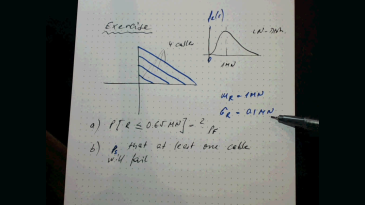 Exercise
4 cable
LN-Distr.
1MN
μR = 1MN
σR = 0.1MN
a) P[R ≤ 0.65MN] = ? PF
b) that at least one cable
will fail